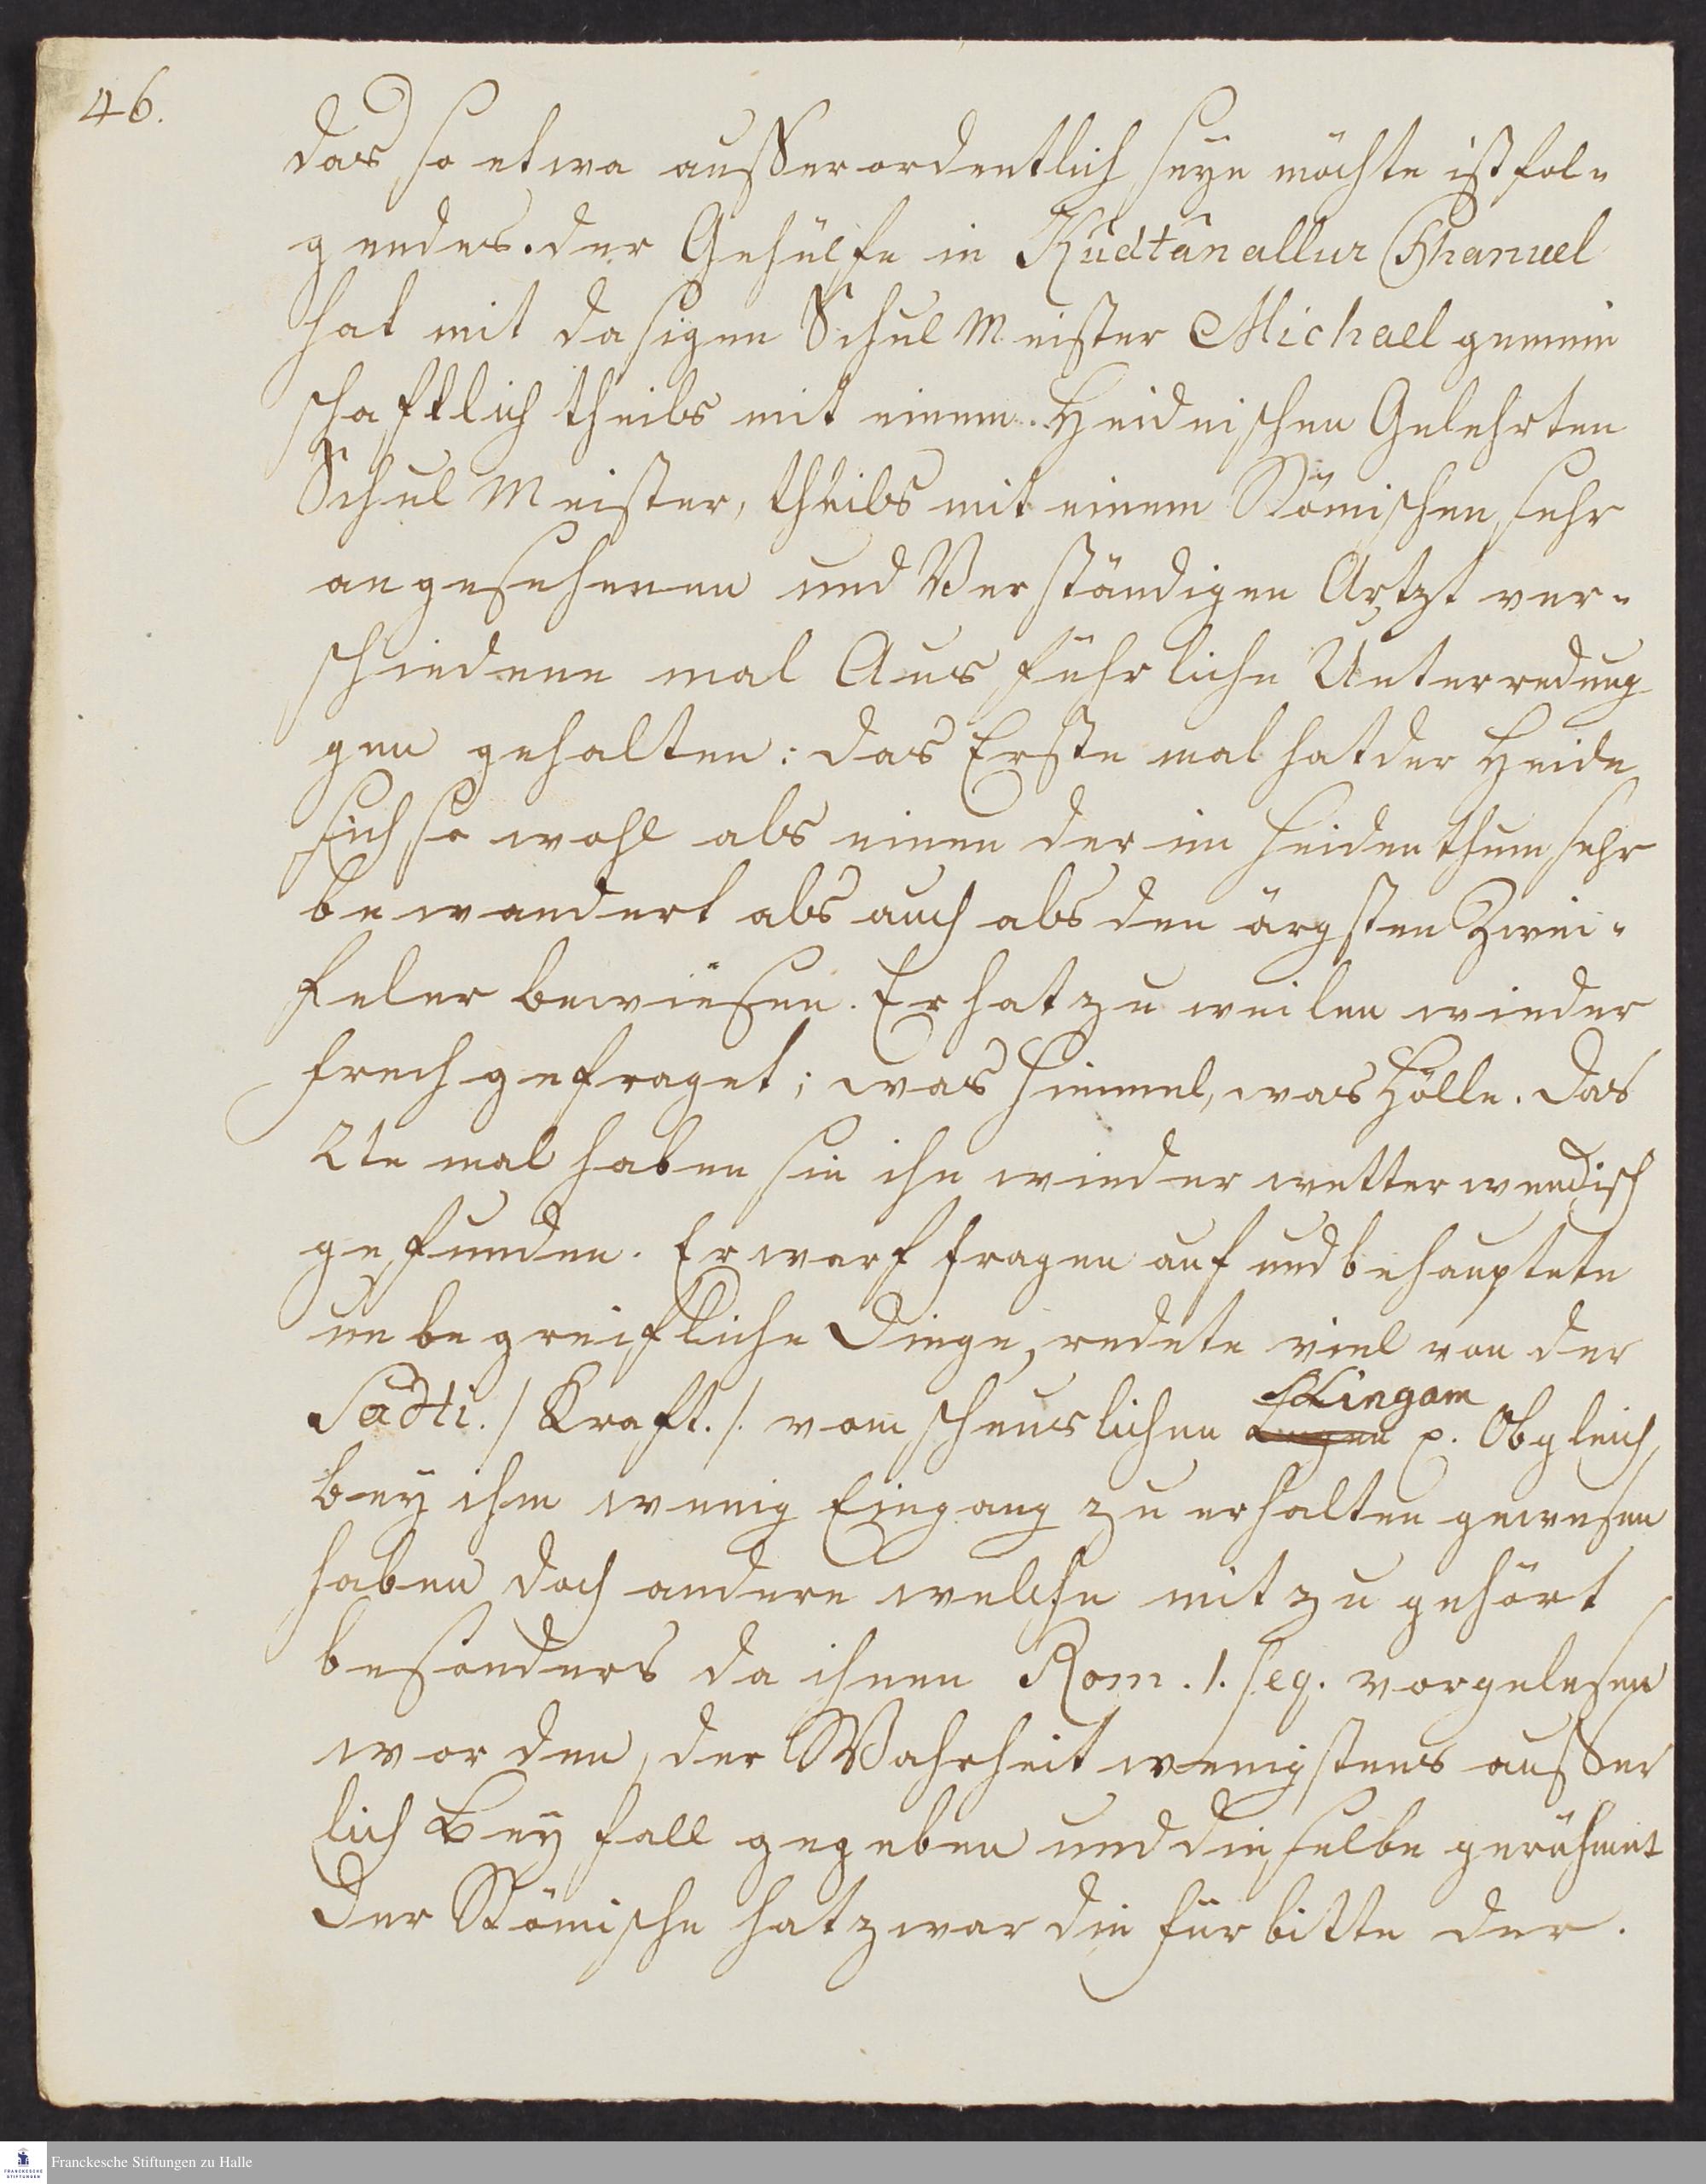 46.
das so etwa ausserordentlich seyn möchte ist fol-
gendes. der Gehülfe in Kudtânallur
hat mit dasigen Schul Meister Michael gemein
schafftlich theils mit einem Heidnischen Gelehrten
Schul Meister, theils mit einem Römischen sehr
angesehenen und Verständigen Artzt ver-
schiedene mal Aus führliche Unterredung
gen gehalten: das Erste mal hat der Heide
sich so wohl als einen der im Heidenthum sehr
bewandert als auch als den ärgsten Zwei-
feler bewiesen. Er hat zu weilen wieder
frech gefraget; was Himmel, was Hölle. das
2te mal haben sie ihn wieder wetterwendisch
gefunden. Er warf fragen auf und behauptete
unbegreifliche Dinge, redete viel von der
Sadti. /. Kraft. /. vom scheuslichen Lingam p. Obgleich
bey ihm wenig Eingang zu erhalten gewesen
haben doch andere welche mit zu gehört
besonders da ihnen Rom. 1. seq. vorgelesen
worden, der Wahrheit wenigstens ausser
lich Bey fall gegeben und dieselbe gerühmt
Der Römische hat zwar die fürbitte der.
Franckesche Stiftungen zu Halle